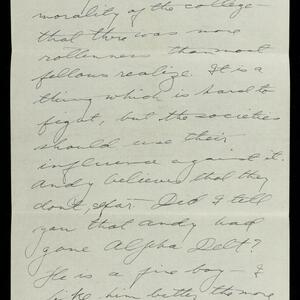 morality of the college -
that there was more
rottenness than most
fellows realize. It is a
thing which is hard to
fight, but the societies
should use their
influence against it.
Andy believes that they
don't, Did I tell
you that Andy had
gone Alpha Delt?
He is a fine boy - I
like him better the more